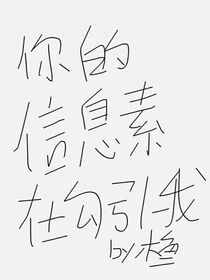 你的
信息素
在勾引我
by 木鱼